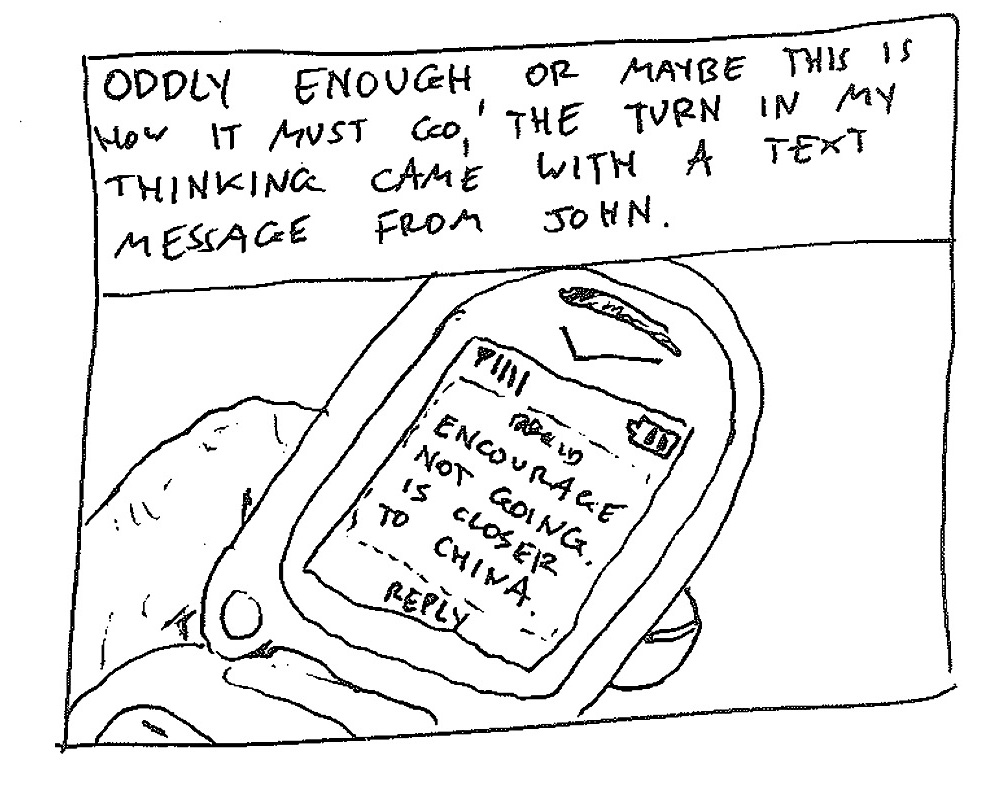 ODDLY ENOUGH, OR MAYBE THIS IS
HOW IT MUST GO, THE TURN IN MY
THINKING CAME WITH A TEXT
MESSAGE FROM JOHN.
ENCOURAGE
NOT GOING.
IS CLOSER
TO CHINA.
REPLY